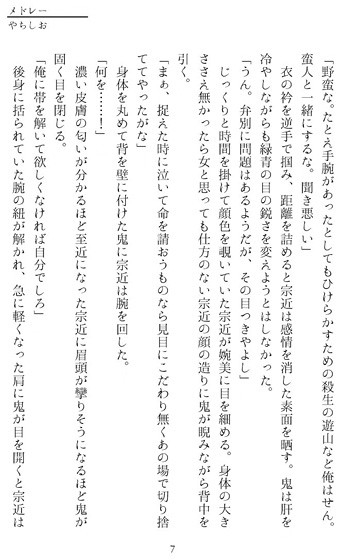 メドレー
やらしお
「野蛮な。たとえ手腕があったとしてもひけらかすための殺生の遊山など俺はせん。
蛮人と一緒にするな。聞き悪しい」
衣の衿を逆手で掴み、距離を詰めると宗近は感情を消した素面を晒す。鬼は肝を
冷やしながらも緑青の目の鋭さを変えようとはしなかった。
「うん。弁別に問題はあるようだが、その目つきやよし」
じっくりと時間を掛けて顔色を覗いていた宗近が婉美に目を細める。身体の大き
ささえ無かったら女と思っても仕方のない宗近の顔の造りに鬼が睨みながら背中を
引く。
「まぁ、捉えた時に泣いて命を請おうものなら見目にこだわり無くあの場で切り捨
ててやったがな」
身体を丸めて背を壁に付けた鬼に宗近は腕を回した。
「何を……！」
濃い皮膚の匂いが分かるほど至近になった宗近に眉頭が攣りそうになるほど鬼が
固く目を閉じる。
「俺に帯を解いて欲しくなければ自分でしろ」
後身に括られていた腕の紐が解かれ、急に軽くなった肩に鬼が目を開くと宗近は
7